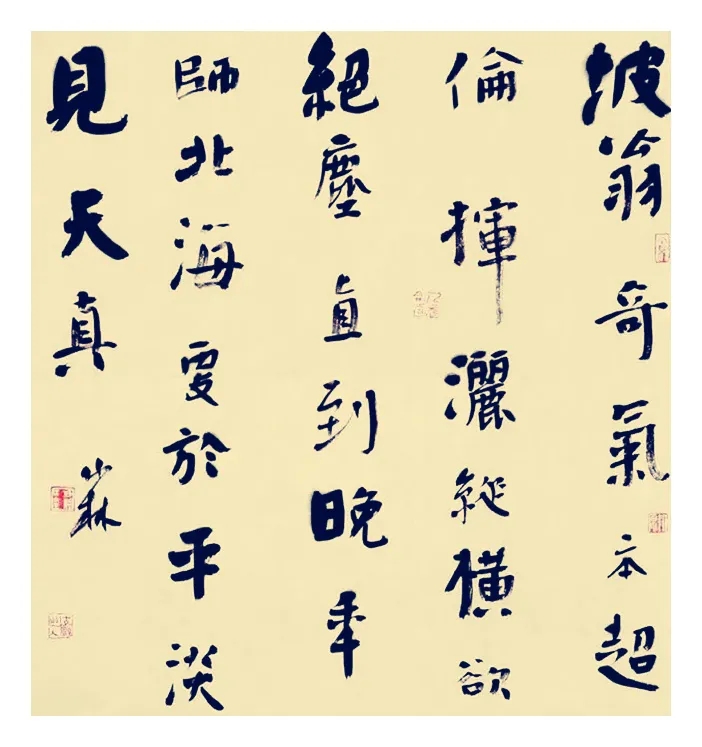 坡翁奇氣本超
倫揮灑縱橫欲
絕塵直到晚年
師北海更於平淡
見天真